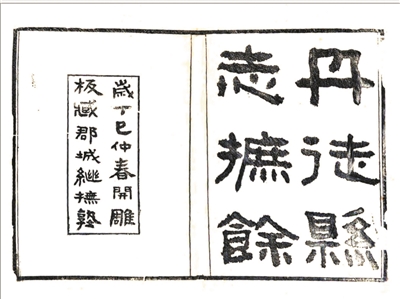 丹徒縣
志摭餘
歲丁巳仲春開雕
板臧郡城繼撫塾